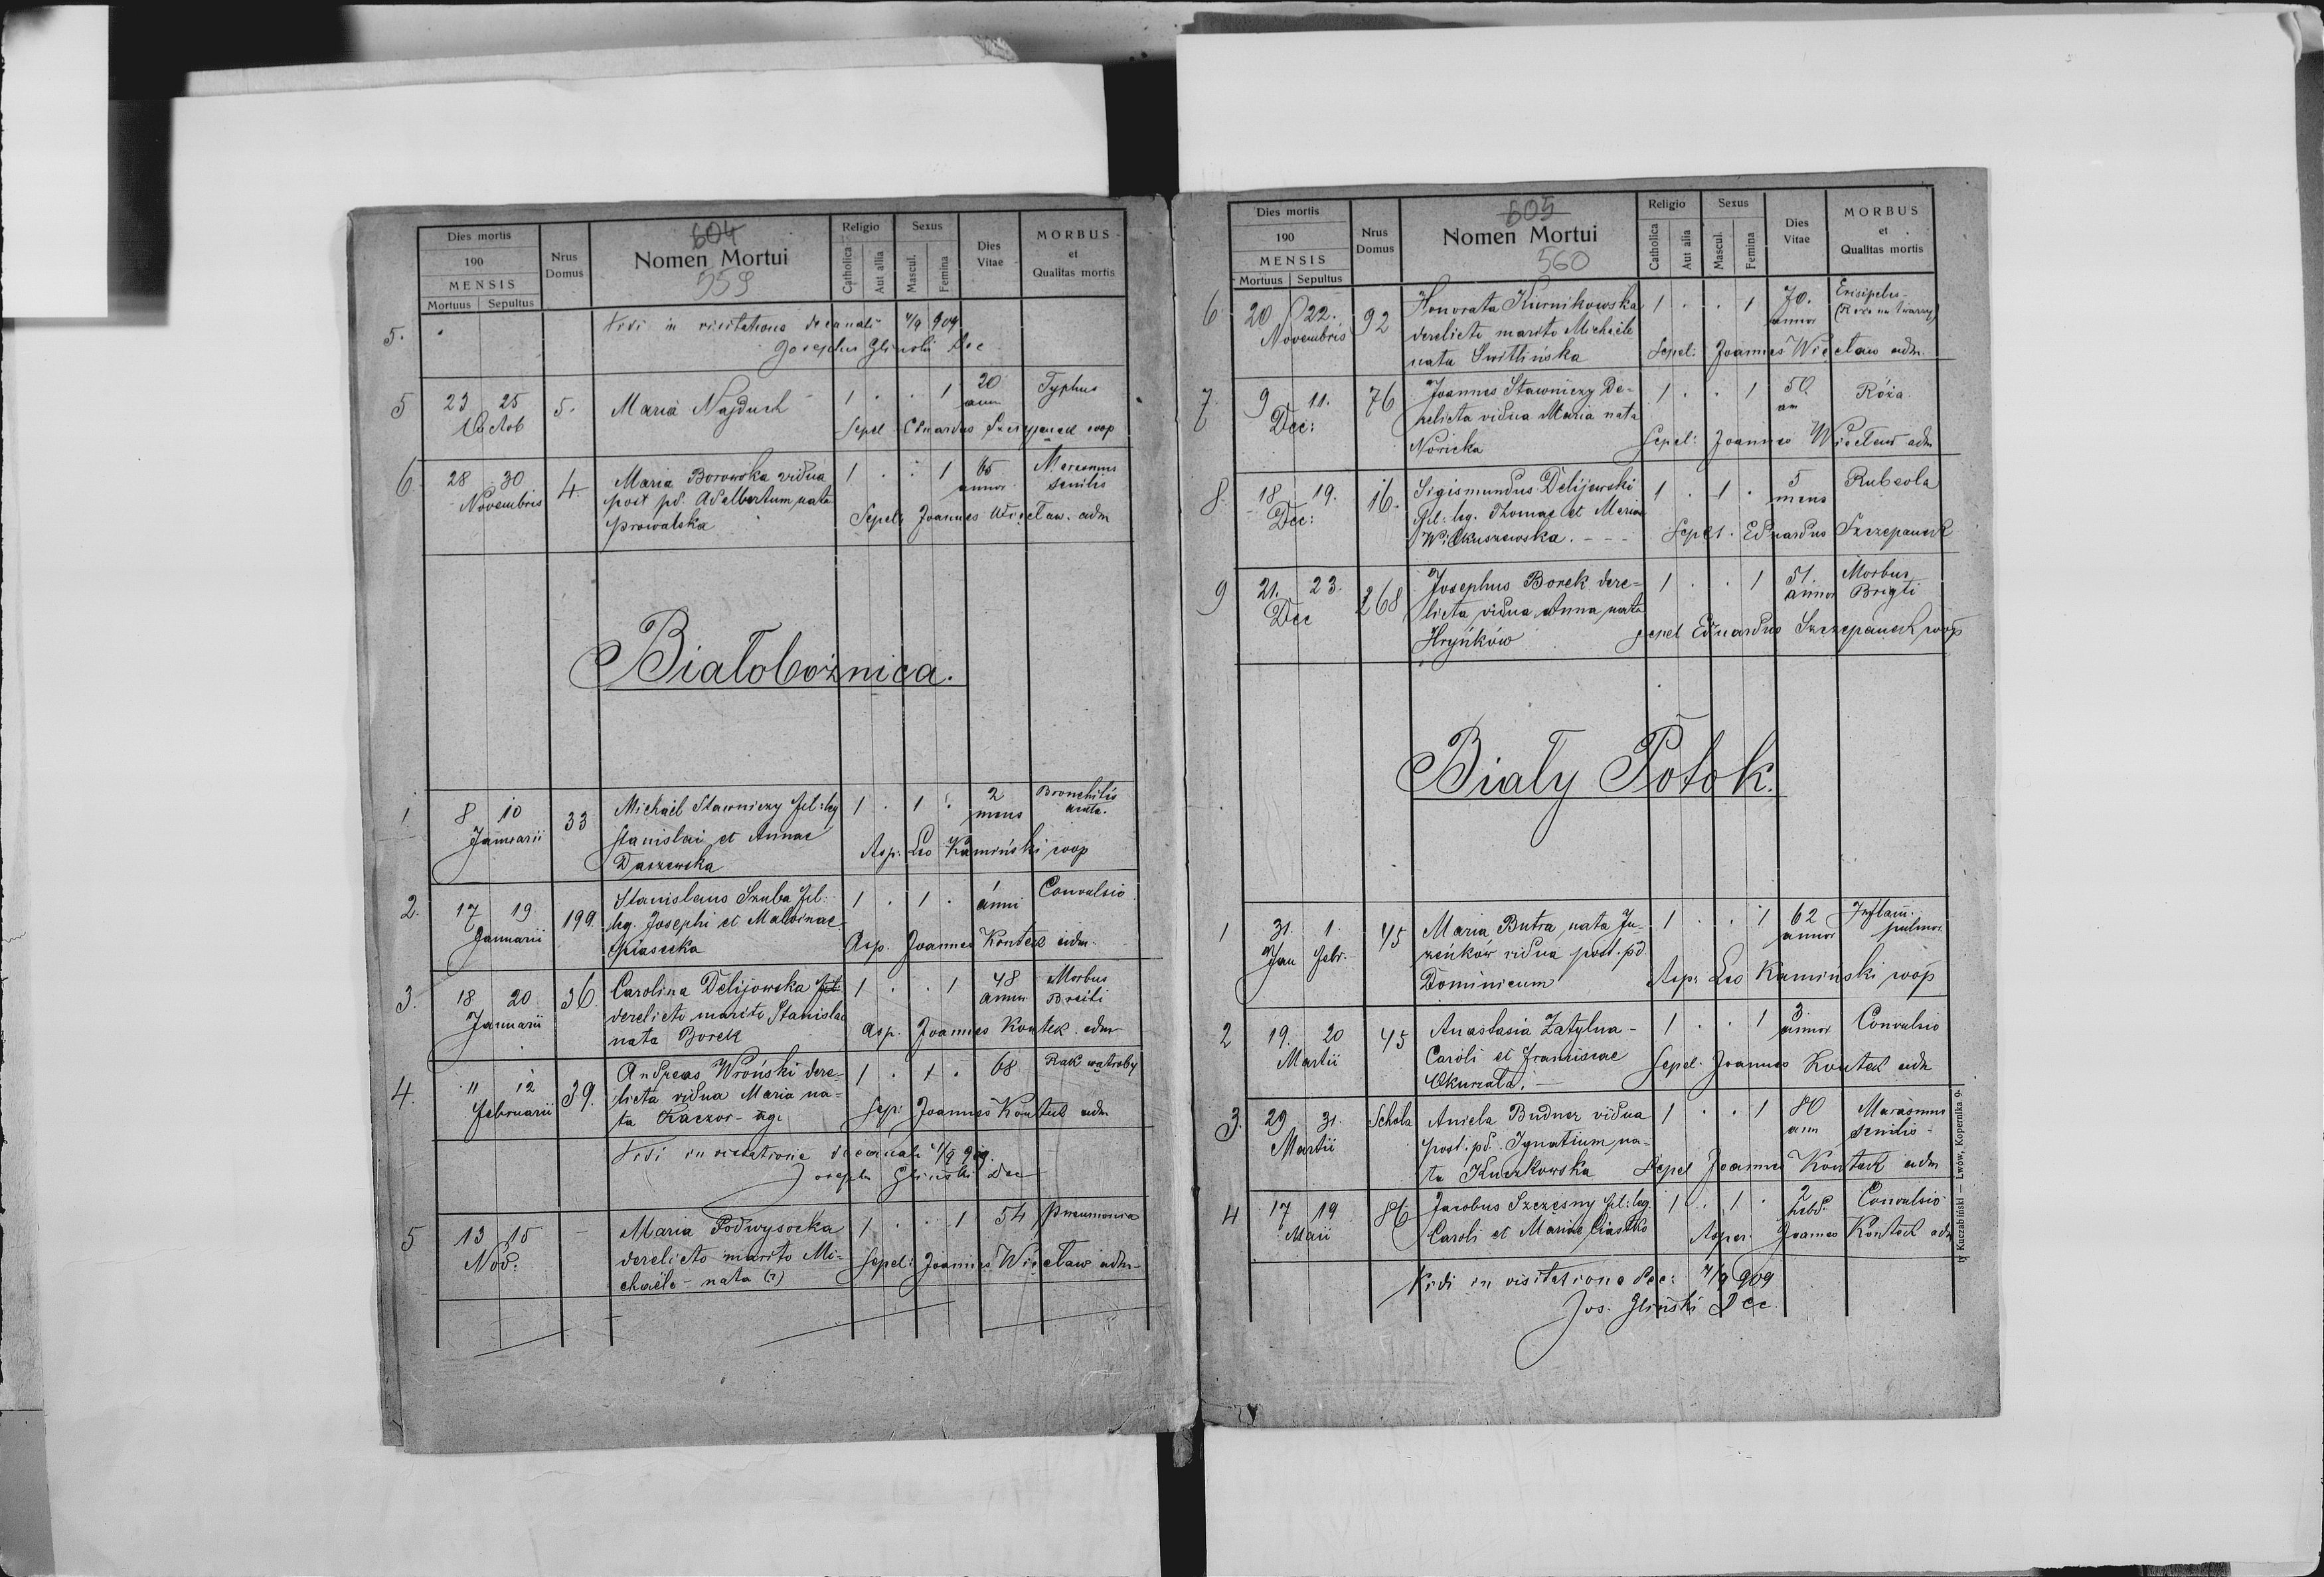 Dies mortis
190
MENSIS
Mortuus Sepultus
Nrus Domus
604
Nomen Mortui
559
Religio
Catholica Aut alia
Sexus
Mascul. Femina
Dies Vitae
MORBUS
et
Qualitas mortis
5.
Vidi in visitatione decanali 4/9 909
Josephus Gliński Dec
5 23 25 5. Maria Najduch 1 . . 1 20 Typhus
Octob ann
Sepel. Eduardus Szczepanek coop
6. 28 30 4. Maria Borowska vidua 1 . . 1 65 Marasmus
Novembris post pd. Adalbertum nata annor senilis
Prowalska Sepel: Joannes Więcław. adm
Białobożnica.
1 8 10 33 Michaël Stawniczy fil: leg 1 . 1 . 2 Bronchitis
Januarii Stanislai et Annae mens acuta.
Daszewska Asp. Leo Kamiński coop
2. 17 19 199 Stanislaus Szuba fil: 1 . 1 . 1 Convulsio
Januarii leg. Josephi et Malvinae anni
Piasecka Asp. Joannes Kontek adm.
3. 18 20 36 Carolina Delijowska fil 1 . . 1 48 Morbus
Januarii derelicto marito Stanislao annor
nata Borek Asp. Joannes Kontek adm
4. 11 12 39. Andreas Wroński dere- 1 . 1 . 68 Rak wątroby
Februarii licta vidua Maria na-
ta Kaczor Sep: Joannes Kontek adm
Vidi in visitatione decanali 4/9 909.
Joseph Gliński Dec
5 13 15 - Maria Podwysocka 1 . . 1 54 Pneumonia
Nov. derelicto marito Mi-
chaële - nata (?) Sepel: Joannes Więcław adm-
Dies mortis
190
MENSIS
Mortuus Sepultus
Nrus Domus
605
Nomen Mortui
560
Religio
Catholica Aut alia
Sexus
Mascul. Femina
Dies Vitae
MORBUS
et
Qualitas mortis
6 20 22. 92 Honorata Kiernikowska 1 . . 1 70. Erisipelas
Novembris derelicto marito Michaële annor (Róża na twarzy)
nata Switlinska Sepel: Joannes Więcław adm.
7. 9 11. 76 Joannes Stawniczy De- 1 . . 1 50 Róża
Dec: relicta vidua Maria nata an
Noricka Sepel: Joannes Więcław adm
8. 18 19. 16. Sigismundus Delijowski 1 . 1 . 5 Rubeola
Dec: fil: leg. Thomae et Mariae mens
Wilkuszewska. - - - Sepel. Eduardus Szczepanek
9 21. 23. 268 Josephus Borek dere= 1 . . 1 51. Morbus
Dec licta vidua Anna nata annor Brigti
Hryńków Sepel Eduardus Szczepanek coop
Biały Potok.
1 31. 1. 45 Maria Butra nata Ju- 1 . . 1 62 Inflam.
Jan Febr. zeńków vidua post. pd. annor pulmor.
Dominicum Asp. Leo Kamiński coop
2 19. 20 45 Anastasia Zatylna - 1 . . 1 3 Convulsio
Martii Caroli et Franciscae annor
Sepel. Joannes Kontek adm
3. 29 31. Schola Aniela Budner vidua 1 . . 1 80 Marasmus
Martii post. pd. Ignatium na- ann senilis-
ta Kuczkowska Sepel Joannes Kontek adm
4 17 19 86 Jacobus Szczęsny fil: leg. 1 . 1 . 2 Convulsio
Maii Caroli et Mariae Ciastko hebd.
Asper. Joannes Kontek adm
Vidi in visitatione dec: 4/9 909
Jos. Gliński Dec.
ty Kuczabiński — Lwów, Kopernika 9.